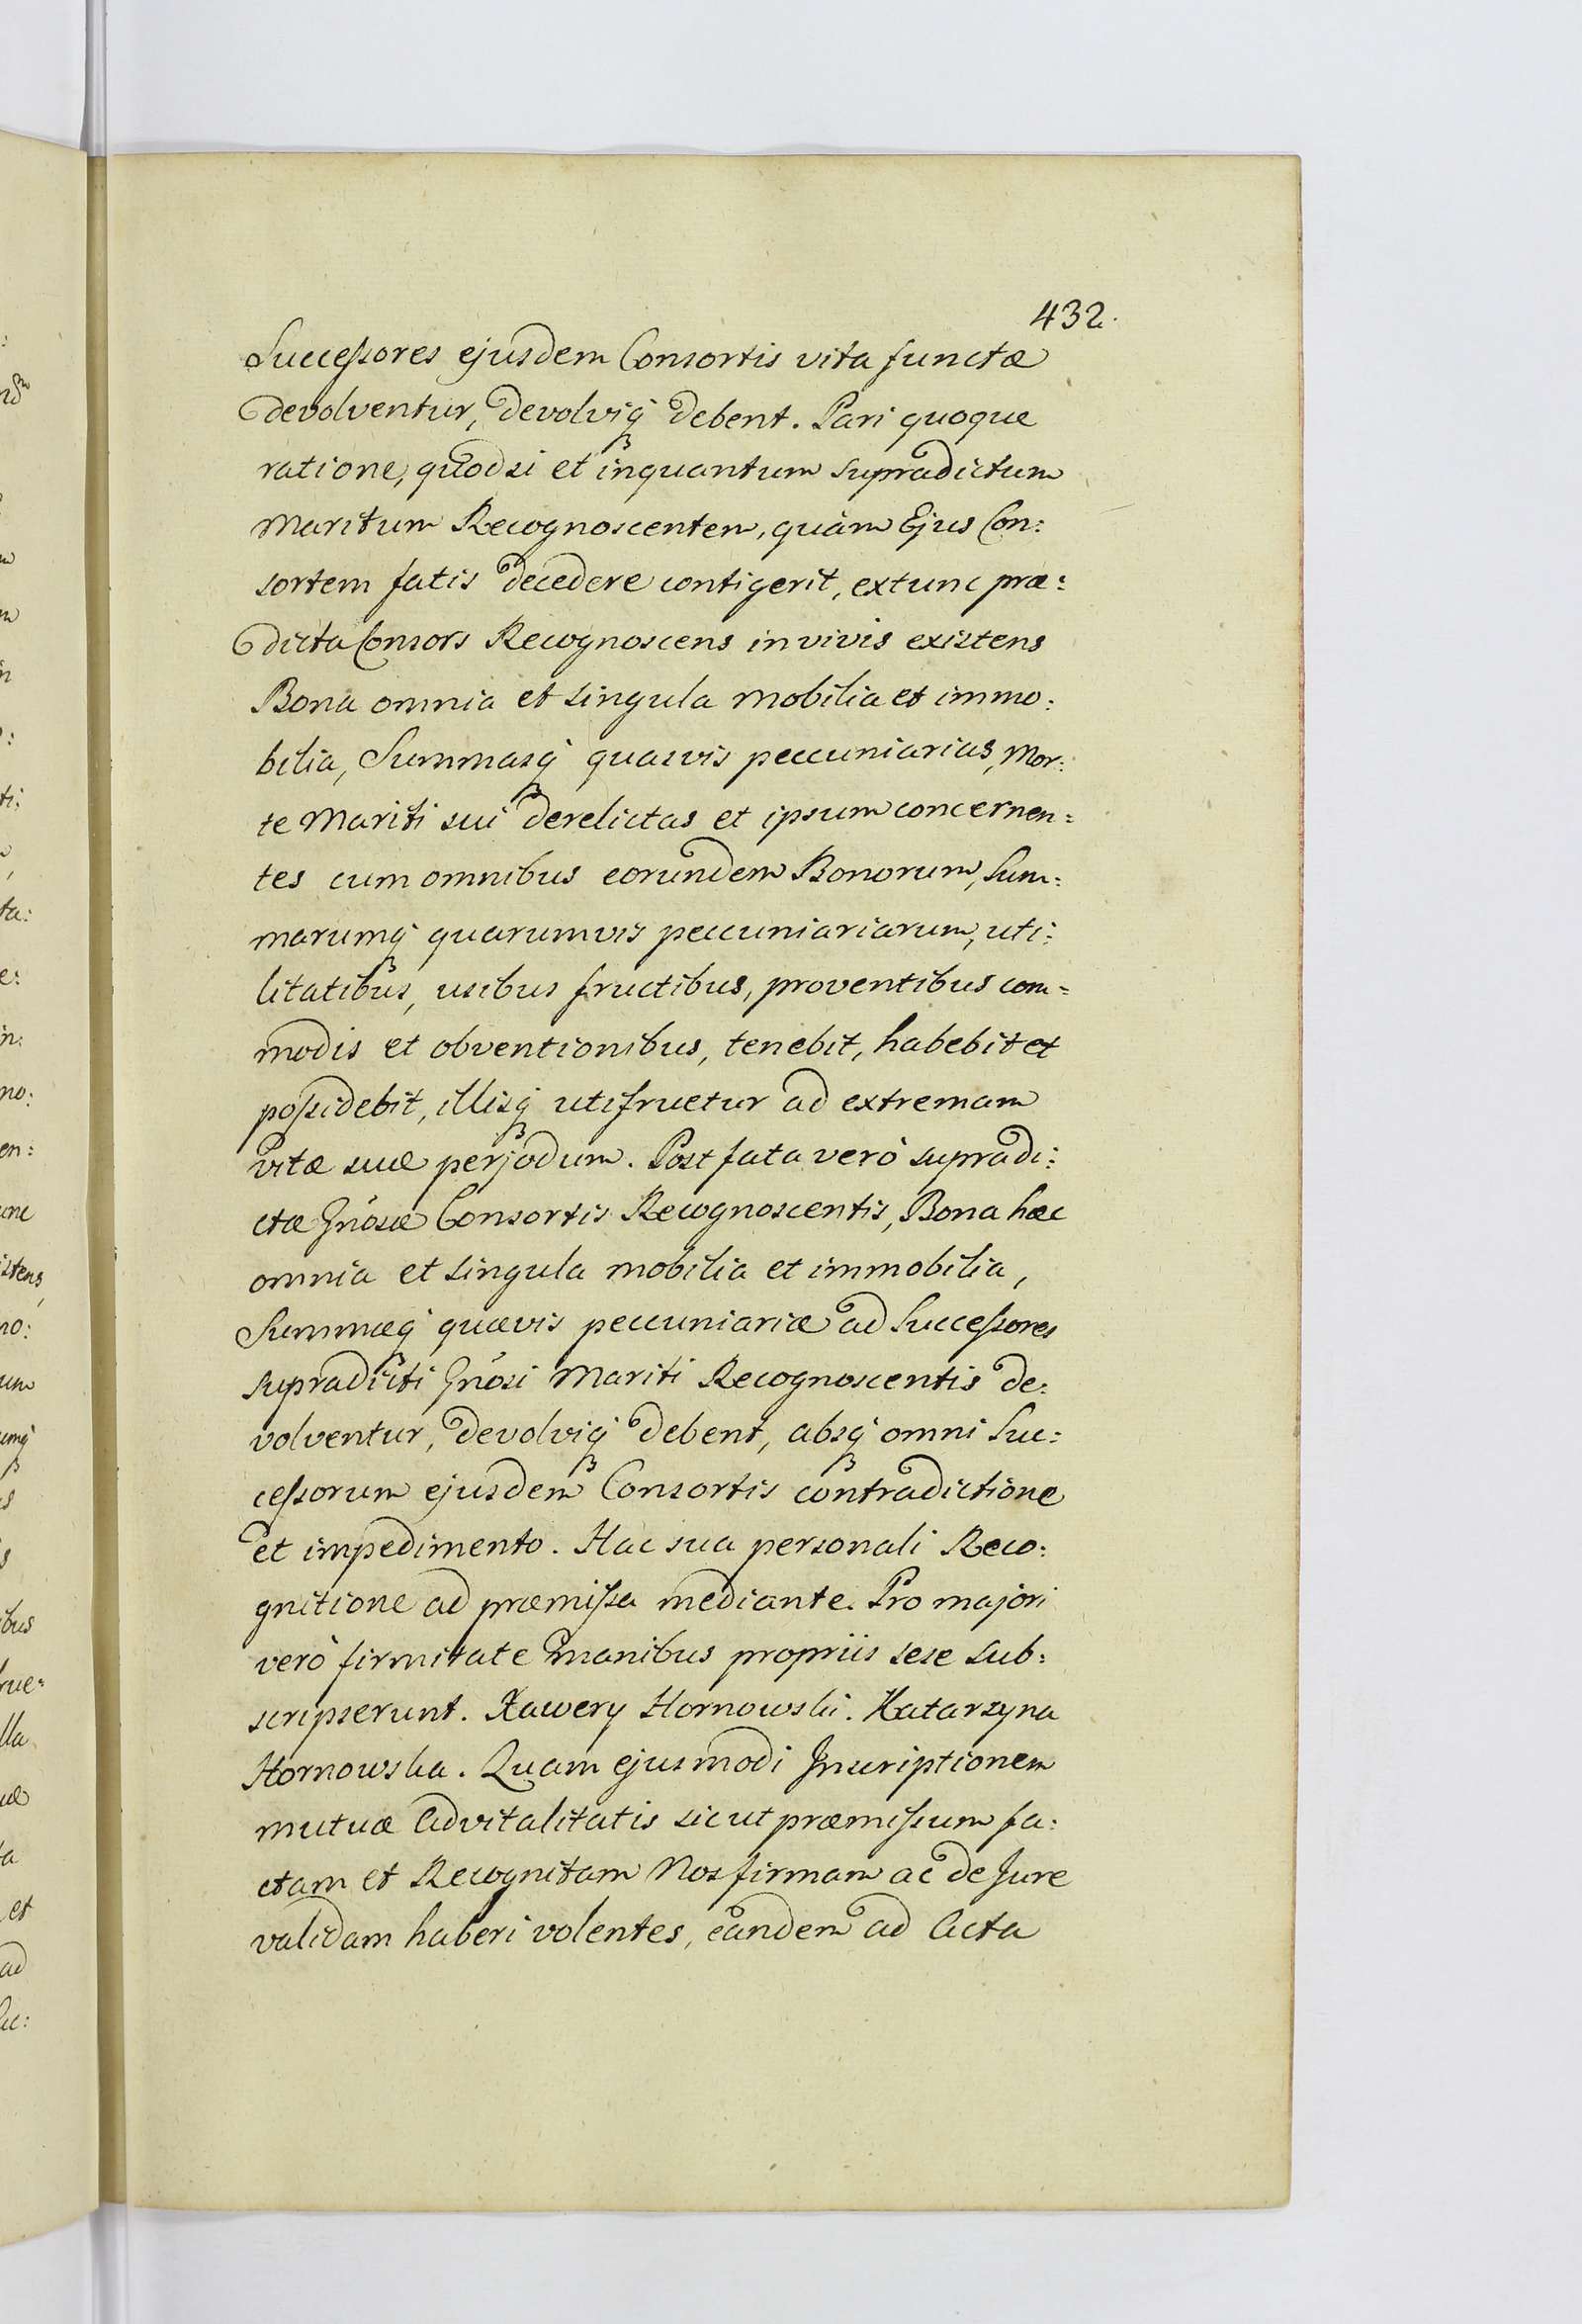 432.
Successores ejusdem Consortis vita functæ
devolventur, devolviq̃ debent. Pari quoque
ratione, quodsi et inquantum supradictum
Maritum Recognoscentem, quàm Ejus Con:
sortem fatis decedere contigerit, extunc præ:
dicta Consors Recognoscens in vivis existens
Bona omnia et singula mobilia et immo:
bilia, Summasq̃ quasvis peccuniarias, Mor:
te Mariti sui derelictas et ipsum concernen=
tes cum omnibus eorundem Bonorum, Sum:
marumq̃ quarumvis peccuniariarum, uti:
litatibus, usibus fructibus, proventibus com=
modis et obventionibus, tenebit, habebit et
possidebit, illisq̃ utifruetur ad extremam
vitæ suæ perjodum. Post fata verò supradi:
ctæ Gnosæ Consortis Recognoscentis, Bona hæc
omnia et singula mobilia et immobilia,
Summæq̃ quævis peccuniariæ ad Successores
supradicti Gnosi Mariti Recognoscentis de:
volventur, devolviq̃ debent, absq̃ omni Suc:
cessorum ejusdem Consortis contradictione
et impedimento. Hac sua personali Reco:
gnitione ad præmissa mediante. Pro majori
verò firmitate manibus propriis sese sub:
scripserunt. Xawery Hornowski. Katarzyna
Hornowska. Quam ejusmodi Inscriptionem
mutuæ Advitalitatis sicut præmissum fa:
ctam et Recognitam Nos firmam ac de Jure
validam haberi volentes, eandem ad Acta